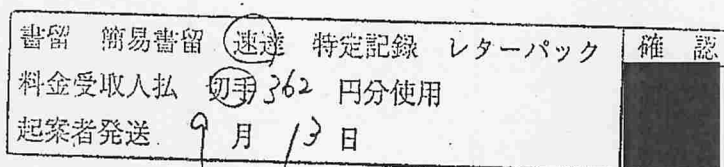 書留 簡易書留 速達 特定記録 レターパック 確認
料金受取人払 切手362 円分使用
起案者発送 9月13日